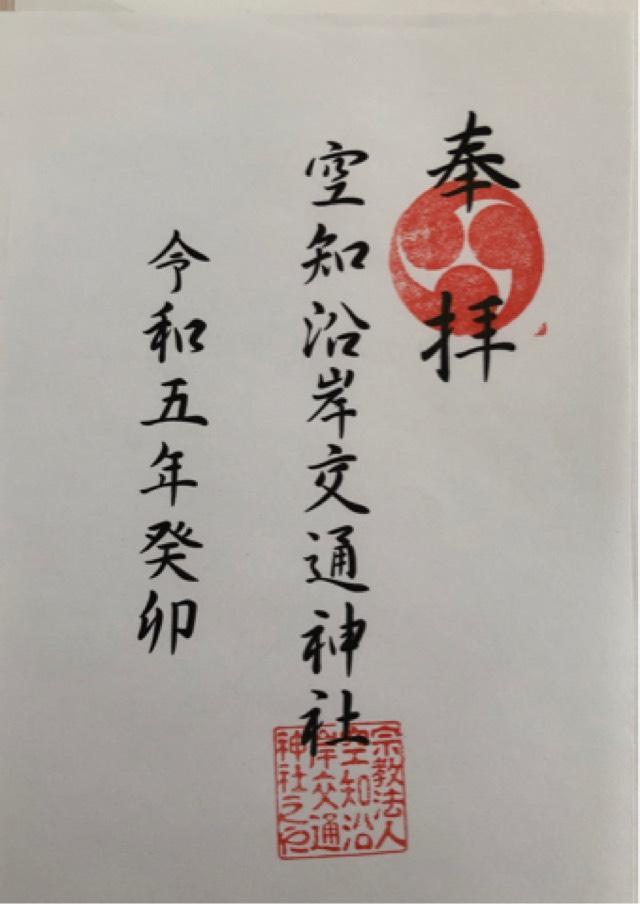 奉拝
空知沿岸交通神社
令和五年癸卯
宗教法人
空知沿
岸交通
神社之印